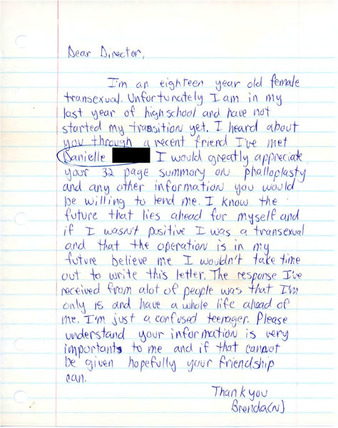 Dear Director,
I'm an eighteen year old female
transexual. Unfortunately I am in my
last year of highschool and have not
started my transition yet. I heard about
you through a recent friend I've met
Danielle I would greatly appreciate
your 32 page summary on phalloplasty
and any other information you would
be willing to lend me. I know the
future that lies ahead for myself and
if I wasn't positive I was a transexual
and that the operation is in my
future believe me I wouldn't take time
out to write this letter. The response I've
received from alot of people was that I'm
only 18 and have a whole life ahead of
me. I'm just a confused teenager. Please
understand your information is very
important to me and if that cannot
be given hopefully your friendship
can.
Thank you
Brenda(N)